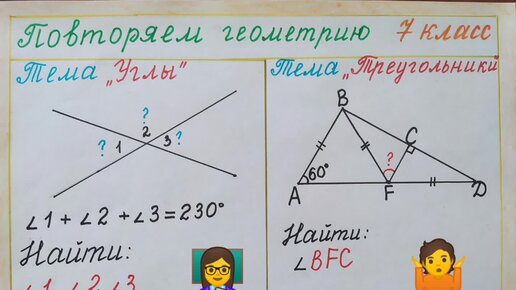 Повторяем геометрию 7 класс
Тема „Углы"
?
? 1 2 3 ?
∠1 + ∠2 + ∠3 = 230°
Найти:
∠1, ∠2, ∠3
Тема „Треугольники"
B
C
?
60°
A F D
Найти:
∠BFC